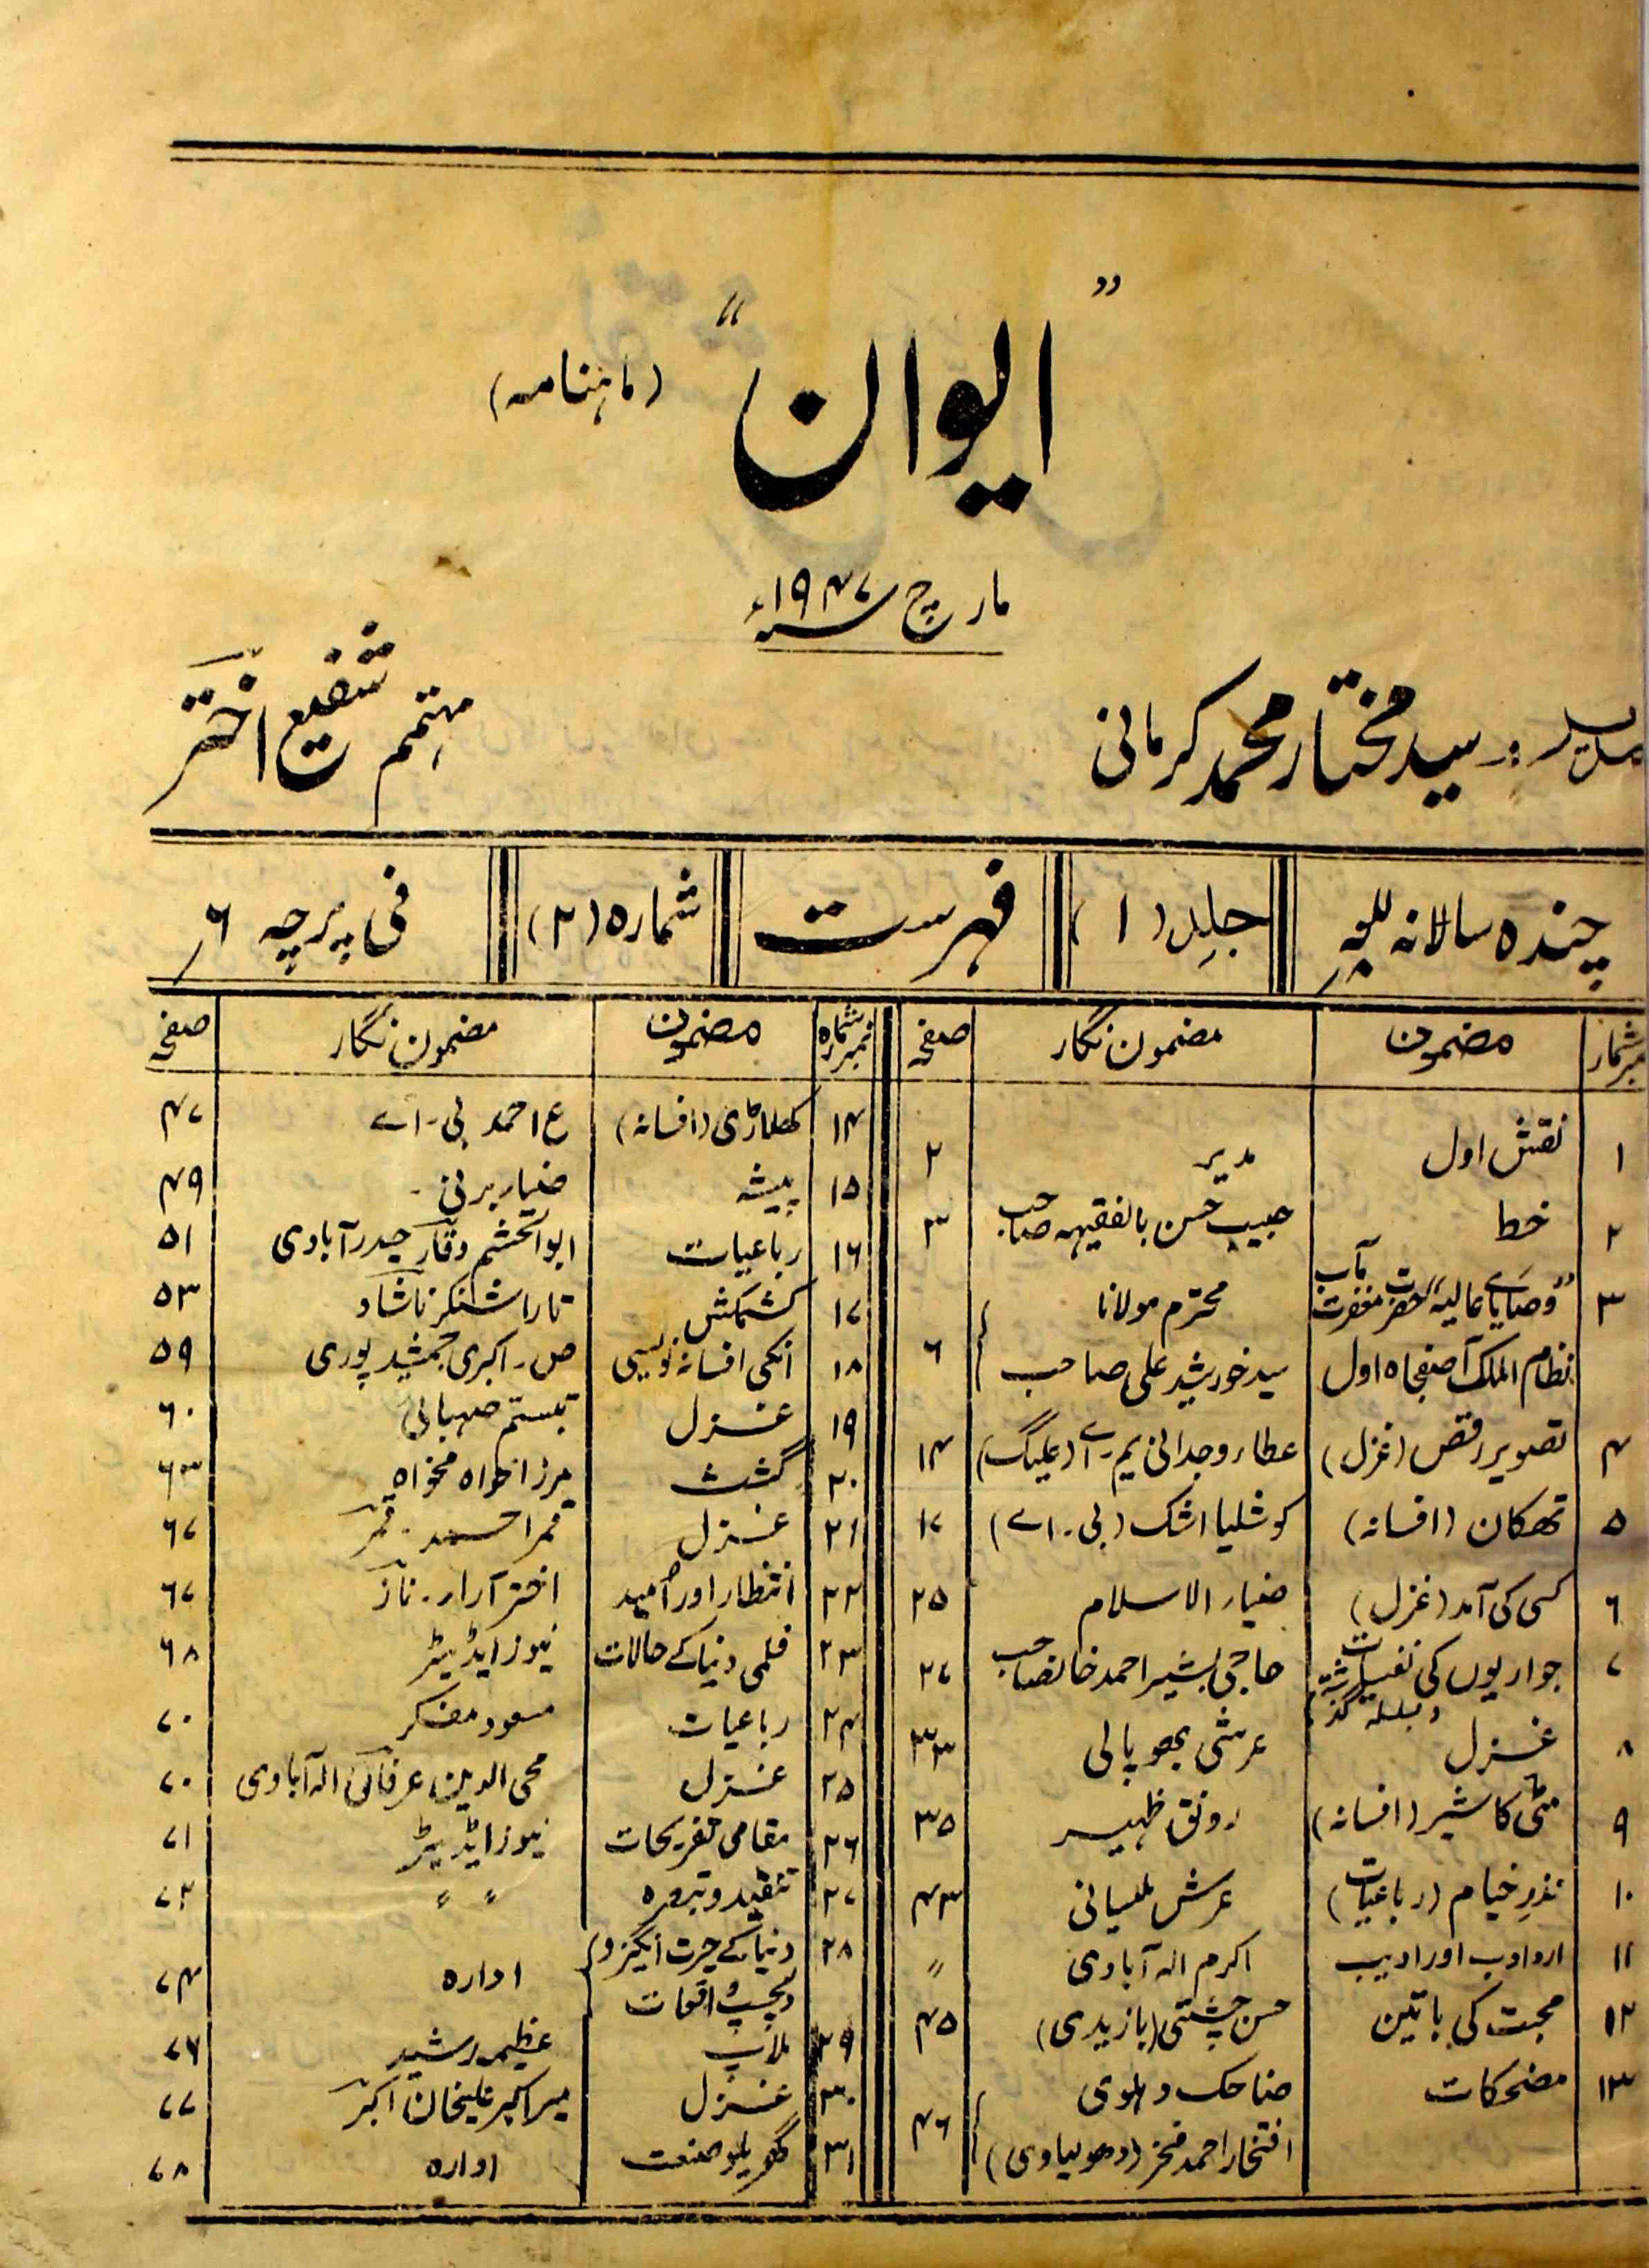 "ایوان"
(ماہنامہ)
مارچ سنہ ۱۹۴۷ء
سید مختار محمد کرمانی
مہتمم شفیع اختر
چندہ سالانہ للعہ
جلد (۱)
فہرست
شمارہ (۲)
فی پرچہ ۶؍
نمبر شمار مضمون مضمون نگار صفحہ
۱ نقش اول مدیر ۲
۲ خط حبیب حسن بالفقیہہ صاحب ۳
۳ "وصایائے عالیہ" حضرت مغفرت مآب محترم مولانا
نظام الملک آصفجاہ اول سید خورشید علی صاحب ۶
۴ تصویر رقص (غزل) عطاء وجدانی یم۔اے (علیگ) ۱۴
۵ تھکان (افسانہ) کوشلیا اشک (بی۔اے) ۱۷
۶ کسی کی آمد (غزل) ضیاء الاسلام ۲۵
۷ جواریوں کی نفسیات حاجی بشیر احمد خانصاحب ۲۷
بسلسلہ گذشتہ
۸ غزل عرشی بھوپالی ۳۳
۹ مٹی کا شیر (افسانہ) رونق ظہیر ۳۵
۱۰ نذرِ خیام (رباعیات) عرش ملسیانی ۴۳
۱۱ اردو ادب اور ادیب اکرم الہ آبادی 〃
۱۲ محبت کی باتیں حسن چشتی (بازیدی) ۴۵
۱۳ مضحکات ضاحک دہلوی
افتخار احمد فخر (دھولیاوی) ۴۶
نمبر شمارہ مضمون مضمون نگار صفحہ
۱۴ کھلاڑی (افسانہ) ع احمد بی۔اے ۴۷
۱۵ پیشہ ضیاء برنی۔ ۴۹
۱۶ رباعیات ابو الحشم وقار حیدرآبادی ۵۱
۱۷ کشمکش تارا شنکر ناشاد ۵۳
۱۸ انکی افسانہ نویسی ص۔اکبری جمشید پوری ۵۹
۱۹ غزل تبسّم صہبائی ۶۰
۲۰ گشت مرزا خواہ مخواہ ۶۳
۲۱ غزل قمر احمد۔قمر ۶۷
۲۲ انتظار اور اُمید اختر آراء۔ناز ۶۷
۲۳ فلمی دنیا کے حالات نیوز ایڈیٹر ۶۸
۲۴ رباعیات مسعود مفکر ۷۰
۲۵ غزل محی الدین عرفانی الہ آبادی ۷۰
۲۶ مقامی تفریحات نیوز ایڈیٹر ۷۱
۲۷ تنقید و تبصرہ 〃 〃 ۷۲
۲۸ دنیا کے حیرت انگیز و
دلچسپ واقعات ادارہ ۷۴
۲۹ ملاپ عظیم رشید ۷۶
۳۰ غزل میر اکبر علیخان اکبر ۷۷
۳۱ گھریلو صنعت ادارہ ۷۸